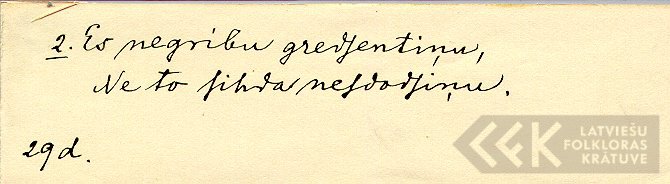 2. Es negribu gredſentiņu,
Ne to ſihda neſdodſiņu.
29d.
LATVIEŠU
FOLKLORAS
KRĀTUVE